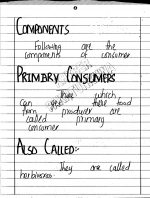 COMPONENTS
Following are the
components of consumer
PRIMARY CONSUMERS
There which
can get there food
from producer are
called primary
consumer
ALSO CALLED:-
They are called
herbivores